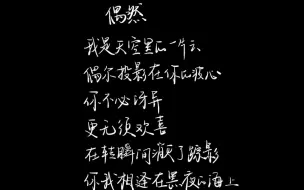 偶然
我是天空里的一片云
偶尔投影在你的波心
你不必讶异
更无须欢喜
在转瞬间消灭了踪影
你我相逢在黑夜的海上